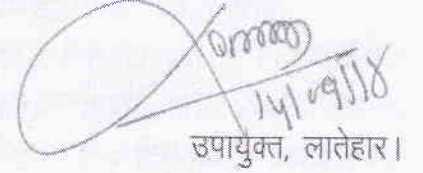 14/09/18
उपायुक्त, लातेहार।